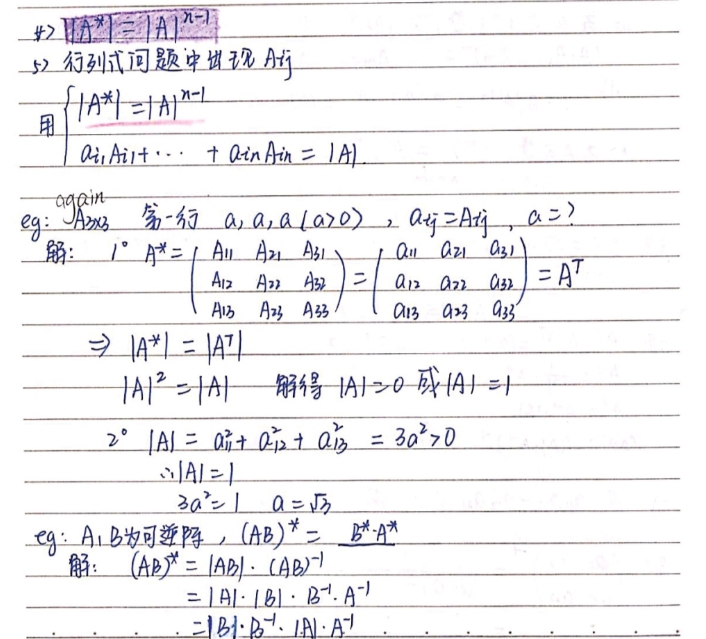 4> |A*| = |A|ⁿ⁻¹
5> 行列式问题中出现 Aij
用 { |A*| = |A|ⁿ⁻¹
ai1Ai1 + ··· + ainAin = |A|.
again
eg: A3×3 第一行 a, a, a (a>0), aij = Aij, a = ?
解: 1° A* = ( A11 A21 A31 ) = ( a11 a21 a31 ) = Aᵀ
( A12 A22 A32 ) ( a12 a22 a32 )
( A13 A23 A33 ) ( a13 a23 a33 )
⇒ |A*| = |Aᵀ|
|A|² = |A| 解得 |A|=0 或 |A|=1
2° |A| = a²11 + a²12 + a²13 = 3a² > 0
∴ |A| = 1
3a² = 1 a = √3
eg: A, B为可逆阵, (AB)* = B*·A*
解: (AB)* = |AB|·(AB)⁻¹
= |A|·|B|·B⁻¹·A⁻¹
= |B|·B⁻¹·|A|·A⁻¹